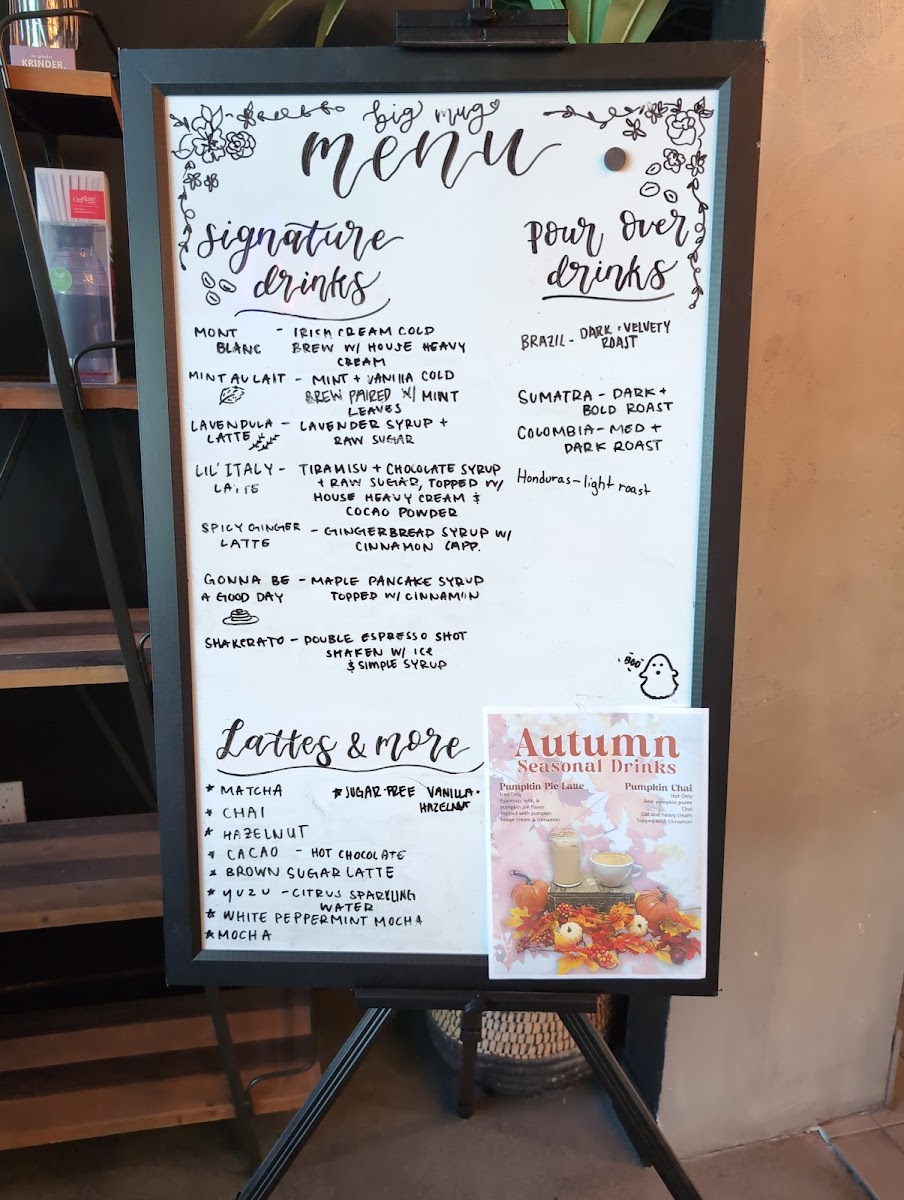 KRINDER.
big mug
menu
signature
drinks
MONT - IRISH CREAM COLD
BLANC BREW W/ HOUSE HEAVY
CREAM
MINT AU LAIT - MINT + VANILLA COLD
BREW PAIRED W/ MINT
LEAVES
LAVENDULA - LAVENDER SYRUP +
LATTE RAW SUGAR
LIL' ITALY - TIRAMISU + CHOCOLATE SYRUP
LATTE + RAW SUGAR, TOPPED W/
HOUSE HEAVY CREAM &
COCAO POWDER
SPICY GINGER - GINGERBREAD SYRUP W/
LATTE CINNAMON CAPP.
GONNA BE - MAPLE PANCAKE SYRUP
A GOOD DAY TOPPED W/ CINNAMON
SHAKERATO - DOUBLE ESPRESSO SHOT
SHAKEN W/ ICE
& SIMPLE SYRUP
Pour Over
drinks
BRAZIL - DARK + VELVETY
ROAST
SUMATRA - DARK +
BOLD ROAST
COLOMBIA - MED +
DARK ROAST
Honduras - light roast
BOO
Lattes & more
* MATCHA
* CHAI
* HAZELNUT
* CACAO - HOT CHOCOLATE
* BROWN SUGAR LATTE
* YUZU - CITRUS SPARKLING
WATER
* WHITE PEPPERMINT MOCHA
* MOCHA
* SUGAR-FREE VANILLA +
HAZELNUT
Autumn
Seasonal Drinks
Pumpkin Pie Latte
Iced Only
Espresso, milk, &
pumpkin pie flavor
Topped with pumpkin
house cream & cinnamon
Pumpkin Chai
Hot Only
Real pumpkin puree
Chai
Oat and heavy cream
Topped with cinnamon